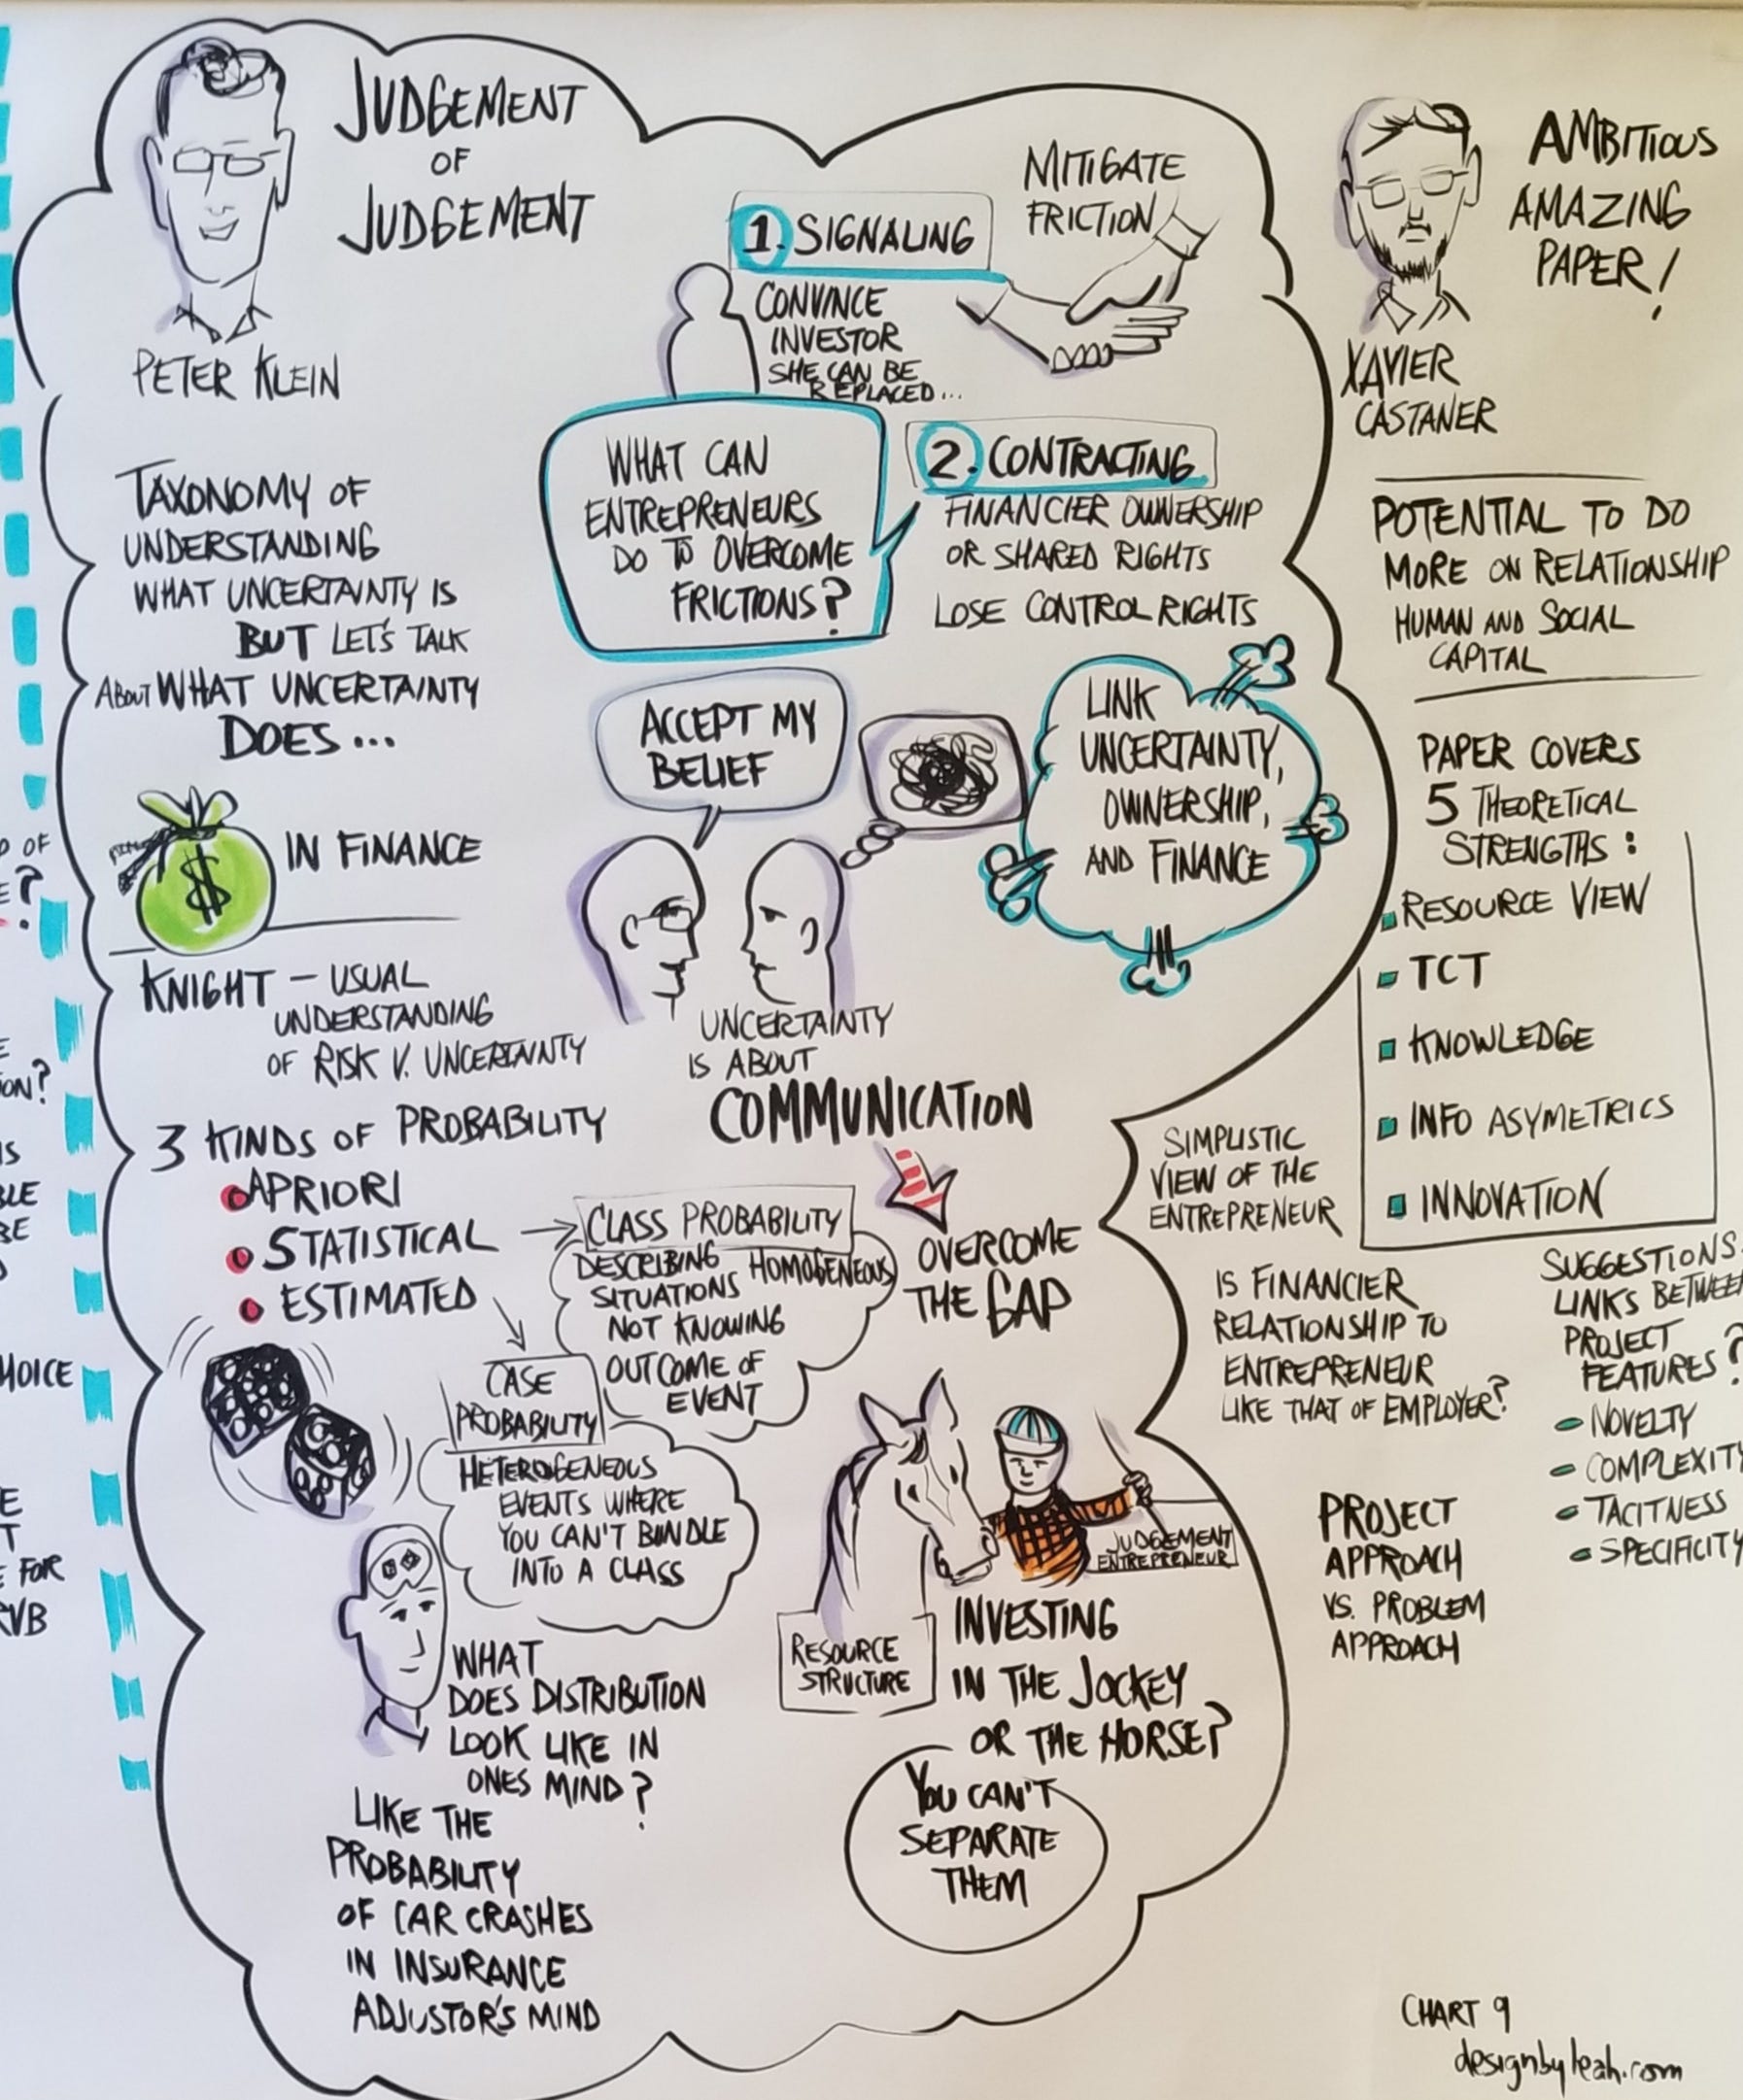 JUDGEMENT
OF
JUDGEMENT
PETER KLEIN
TAXONOMY OF
UNDERSTANDING
WHAT UNCERTAINTY IS
BUT LET'S TALK
ABOUT WHAT UNCERTAINTY
DOES...
IN FINANCE
$
KNIGHT – USUAL
UNDERSTANDING
OF RISK V. UNCERTAINTY
3 KINDS OF PROBABILITY
APRIORI
STATISTICAL
ESTIMATED
CLASS PROBABILITY
DESCRIBING HOMOGENEOUS
SITUATIONS
NOT KNOWING
OUTCOME OF
EVENT
CASE
PROBABILITY
HETEROGENEOUS
EVENTS WHERE
YOU CAN'T BUNDLE
INTO A CLASS
WHAT
DOES DISTRIBUTION
LOOK LIKE IN
ONES MIND?
LIKE THE
PROBABILITY
OF CAR CRASHES
IN INSURANCE
ADJUSTOR'S MIND
MITIGATE
FRICTION
1. SIGNALING
CONVINCE
INVESTOR
SHE CAN BE
REPLACED...
WHAT CAN
ENTREPRENEURS
DO TO OVERCOME
FRICTIONS?
2. CONTRACTING
FINANCIER OWNERSHIP
OR SHARED RIGHTS
LOSE CONTROL RIGHTS
ACCEPT MY
BELIEF
LINK
UNCERTAINTY,
OWNERSHIP,
AND FINANCE
UNCERTAINTY
IS ABOUT
COMMUNICATION
OVERCOME
THE GAP
JUDGEMENT
ENTREPRENEUR
RESOURCE
STRUCTURE
INVESTING
IN THE JOCKEY
OR THE HORSE?
YOU CAN'T
SEPARATE
THEM
XAVIER
CASTANER
AMBITIOUS
AMAZING
PAPER!
POTENTIAL TO DO
MORE ON RELATIONSHIP
HUMAN AND SOCIAL
CAPITAL
PAPER COVERS
5 THEORETICAL
STRENGTHS:
RESOURCE VIEW
TCT
KNOWLEDGE
INFO ASYMETRICS
INNOVATION
SIMPLISTIC
VIEW OF THE
ENTREPRENEUR
IS FINANCIER
RELATIONSHIP TO
ENTREPRENEUR
LIKE THAT OF EMPLOYER?
SUGGESTIONS
LINKS BETWEEN
PROJECT
FEATURES?
NOVELTY
COMPLEXITY
TACITNESS
SPECIFICITY
PROJECT
APPROACH
VS. PROBLEM
APPROACH
CHART 9
designbyleah.com
OF
FOR